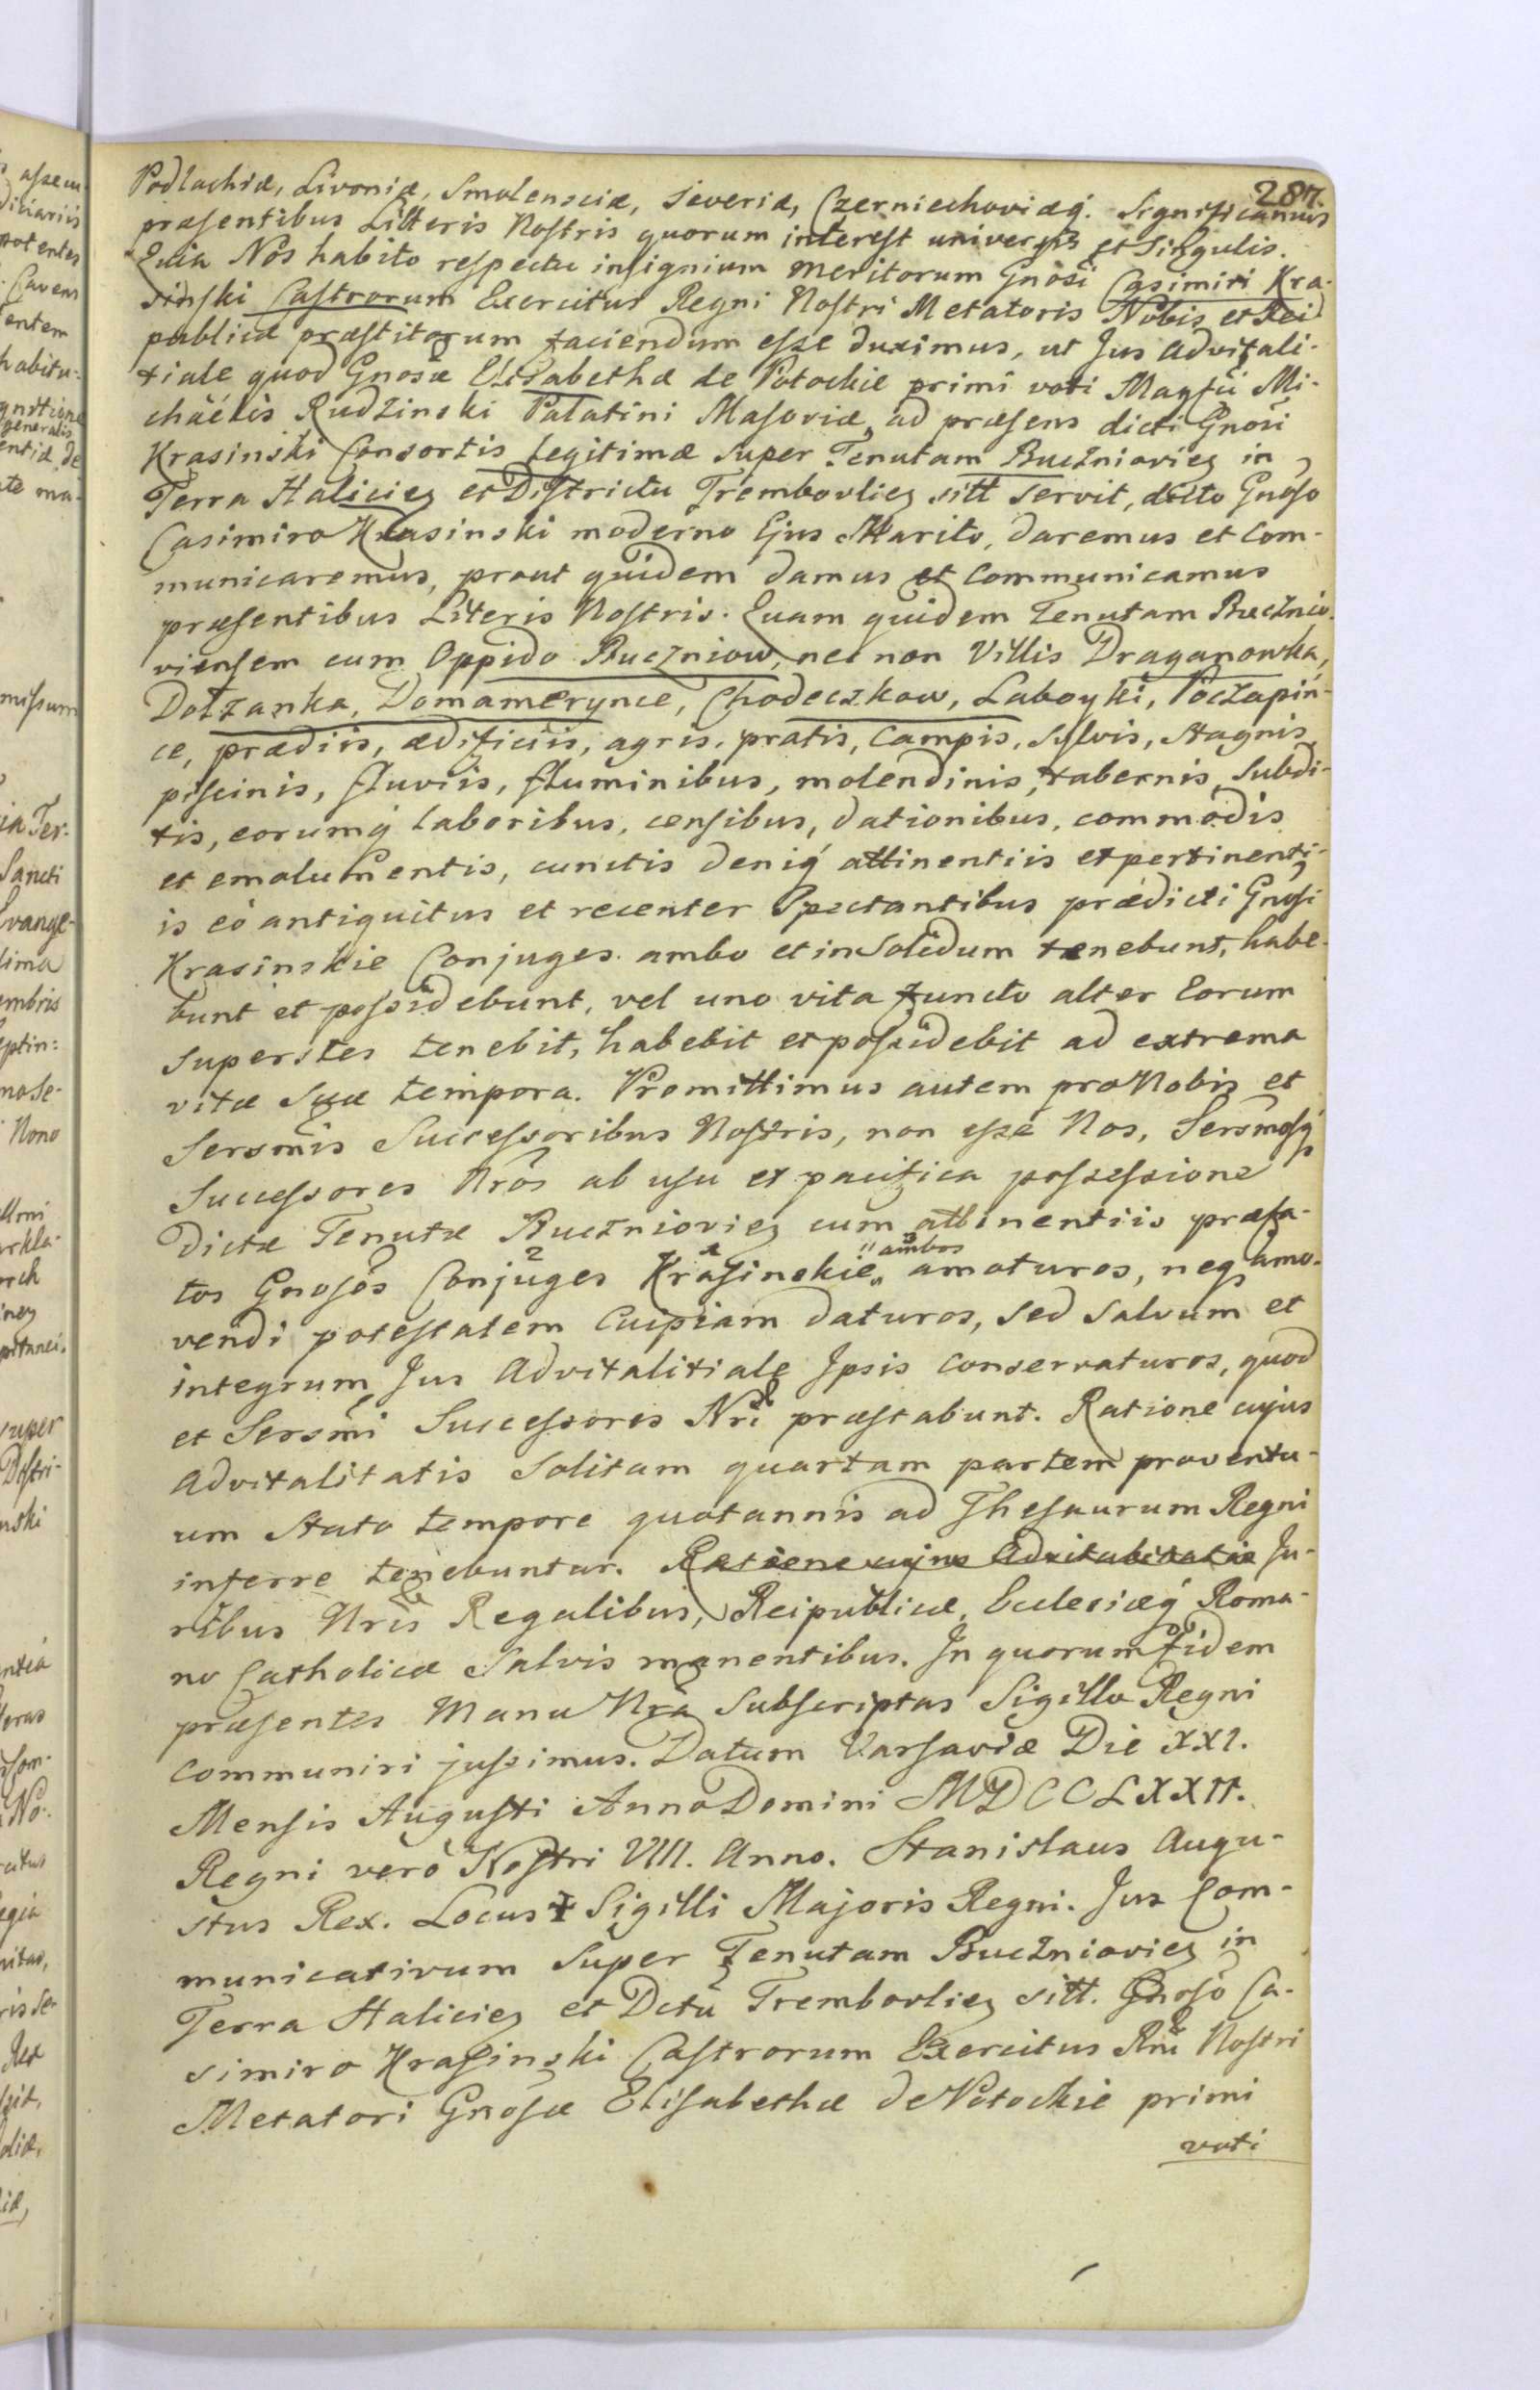 287.
Podlachiæ, Livoniæ, Smolensciæ, Severiæ, Czerniechoviæq́. Significamus
præsentibus Litteris Nostris quorum interest universis et Singulis.
Quia Nos habito respectu insignium meritorum Gnosi Casimiri Kra-
sinski Castrorum Exercitus Regni Nostri Metatoris Nobis et Rei
publicæ præstitorum faciendum esse duximus, ut Jus Advitali-
tiale quod Gnosæ Elisabethæ de Potockie primi voti Magfii Mi-
chaëlis Rudzinski Palatini Masoviæ, ad præsens dicti Gnosi
Krasinski Consortis legitimæ super Tenutam Buczniovieg in
Terra Halicieg et Districtu Trembovlieg sitt servit, dicto Gnoso
Casimiro Krasinski moderno Ejus Marito, daremus et Com-
municaremus, prout quidem damus et Communicamus
præsentibus Literis Nostris. Quam quidem Tenutam Bucznio-
viensem cum Oppido Buczniow, nec non Villis Draganowka,
Dołzanka, Domamerynce, Chodeczkow, Laboyki, Poczapin-
ce, prædiis, ædificiis, agris, pratis, Campis, Sylvis, Stagnis,
piscinis, fluviis, fluminibus, molendinis, tabernis, Subdi-
tis, eorumq́ laboribus, censibus, dationibus, commodis
et emolumentis, cunctis deniq́ attinentiis et pertinenti-
is eò antiquitus et recenter Spectantibus prædicti Gnosi
Krasinskie Conjuges ambo et in Solidum tenebunt, habe-
bunt et possidebunt, vel uno vita functo alter Eorum
Superstes tenebit, habebit et possidebit ad extrema
vitæ Suæ tempora. Promittimus autem pro Nobis et
Sersmis Successoribus Nostris, non esse Nos, Sersmosq́
Successores Nros ab usu et pacifica possessione
Dictæ Tenutæ Buczniovieg cum attinentiis præfa-
tos Gnosos Conjuges Krasinskie " ambos " amoturos, neq amo-
vendi potestatem Cuipiam daturos, sed Salvum et
integrum Jus Advitalitiale Ipsis conservaturos, quod
et Sersmi Successores Nri præstabunt. Ratione cujus
Advitalitatis Solitam quartam partem proventu-
um Stato tempore quotannis ad Thesaurum Regni
inferre tenebuntur. Ratione cujus Advitalitatis Ju-
ribus Nris Regalibus, Reipublicæ, Ecclesiæq́ Roma-
no Catholicæ Salvis manentibus. In quorum fidem
præsentes Manu Nra Subscriptas Sigillo Regni
Communiri jussimus. Datum Varsaviæ Die XXI.
Mensis Augusti Anno Domini MDCCLXXII.
Regni verò Nostri VIII. Anno. Stanislaus Augu-
stus Rex. Locus ☩ Sigilli Majoris Regni. Jus Com-
municativum Super Tenutam Buczniovieg in
Terra Halicieg et Dctu Trembovlieg sitt. Gnoso Ca-
simiro Krasinski Castrorum Exercitus Rni Nostri
Metatori Gnosæ Elisabethæ de Potockie primi
voti